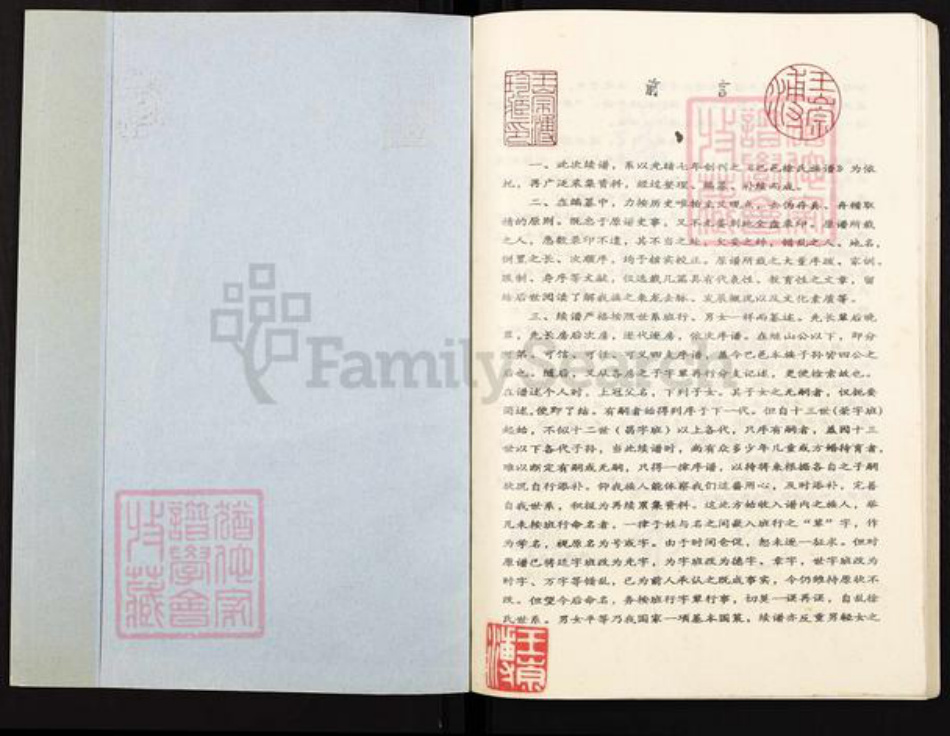 前言
一、此次续谱，系以光绪七年创刊之《巴邑徐氏族谱》为依
托，再广泛采集资料，经过整理、编纂、补续而成。
二、在编纂中，力按历史唯物主义观点，去伪存真、弃糟取
精的原则。既忠于原谱史事，又不
地全盘采印。原谱所载
之人，悉数录印不遗，其不当之处，欠妥之辞，错乱之人、地名，
倒置之长、次顺序，均予核实校正。原谱所载之大量序跋、家训、
服制、寿序等文献，仅选载几篇具有代表性、教育性之文章，留
给后世阅读了解我族之来龙去脉、发展概况以及文化素质等。
三、续谱严格按照世系班行、男女一样而纂述。先长辈后晚
辈，先长房后次房，逐代逐房，依次序谱。在继山公以下，即分
可第、可信、可仕、可义四支序谱，盖今巴邑本族子孙皆四公之
后也。随后，又从各房之子字辈再行分支记述，更便检索故也。
在谱述个人时，上冠父名，下列子女。其子女之无嗣者，仅扼要
简述，便即了结。有嗣者始得列序于下一代。但自十三世(荣字班)
起始，不似十二世（昌字班）以上各代，只序有嗣者，盖因十三
世以下各代子孙，当此续谱时，尚有众多少年儿童或方婚待育者，
难以断定有嗣或无嗣，只得一律序谱，以待将来根据各自之子嗣
状况自行添补。仰我族人能体察我们这番用心，及时添补，完善
自我世系，积极为再续累集资料。这次方始收入谱内之族人，举
凡未按班行命名者，一律于姓与名之间嵌入班行之“辈”字，作
为学名，视原名为号或字。由于时间仓促，恕未逐一征求。但对
原谱已将廷字班改为光字，为字班改为德字、章字，世字班改为
时字、万字等错乱，已为前人承认之既成事实，今仍维持原状不
改。但望今后命名，务按班行字辈行事，切莫一误再误，自乱徐
氏世系。男女平等乃我国家一项基本国策，续谱亦反重男轻女之
王宗溥
珍藏印
王宗溥
犹他家
谱学会
收藏
犹他家
谱学会
收藏
王宗溥
FamilySearch